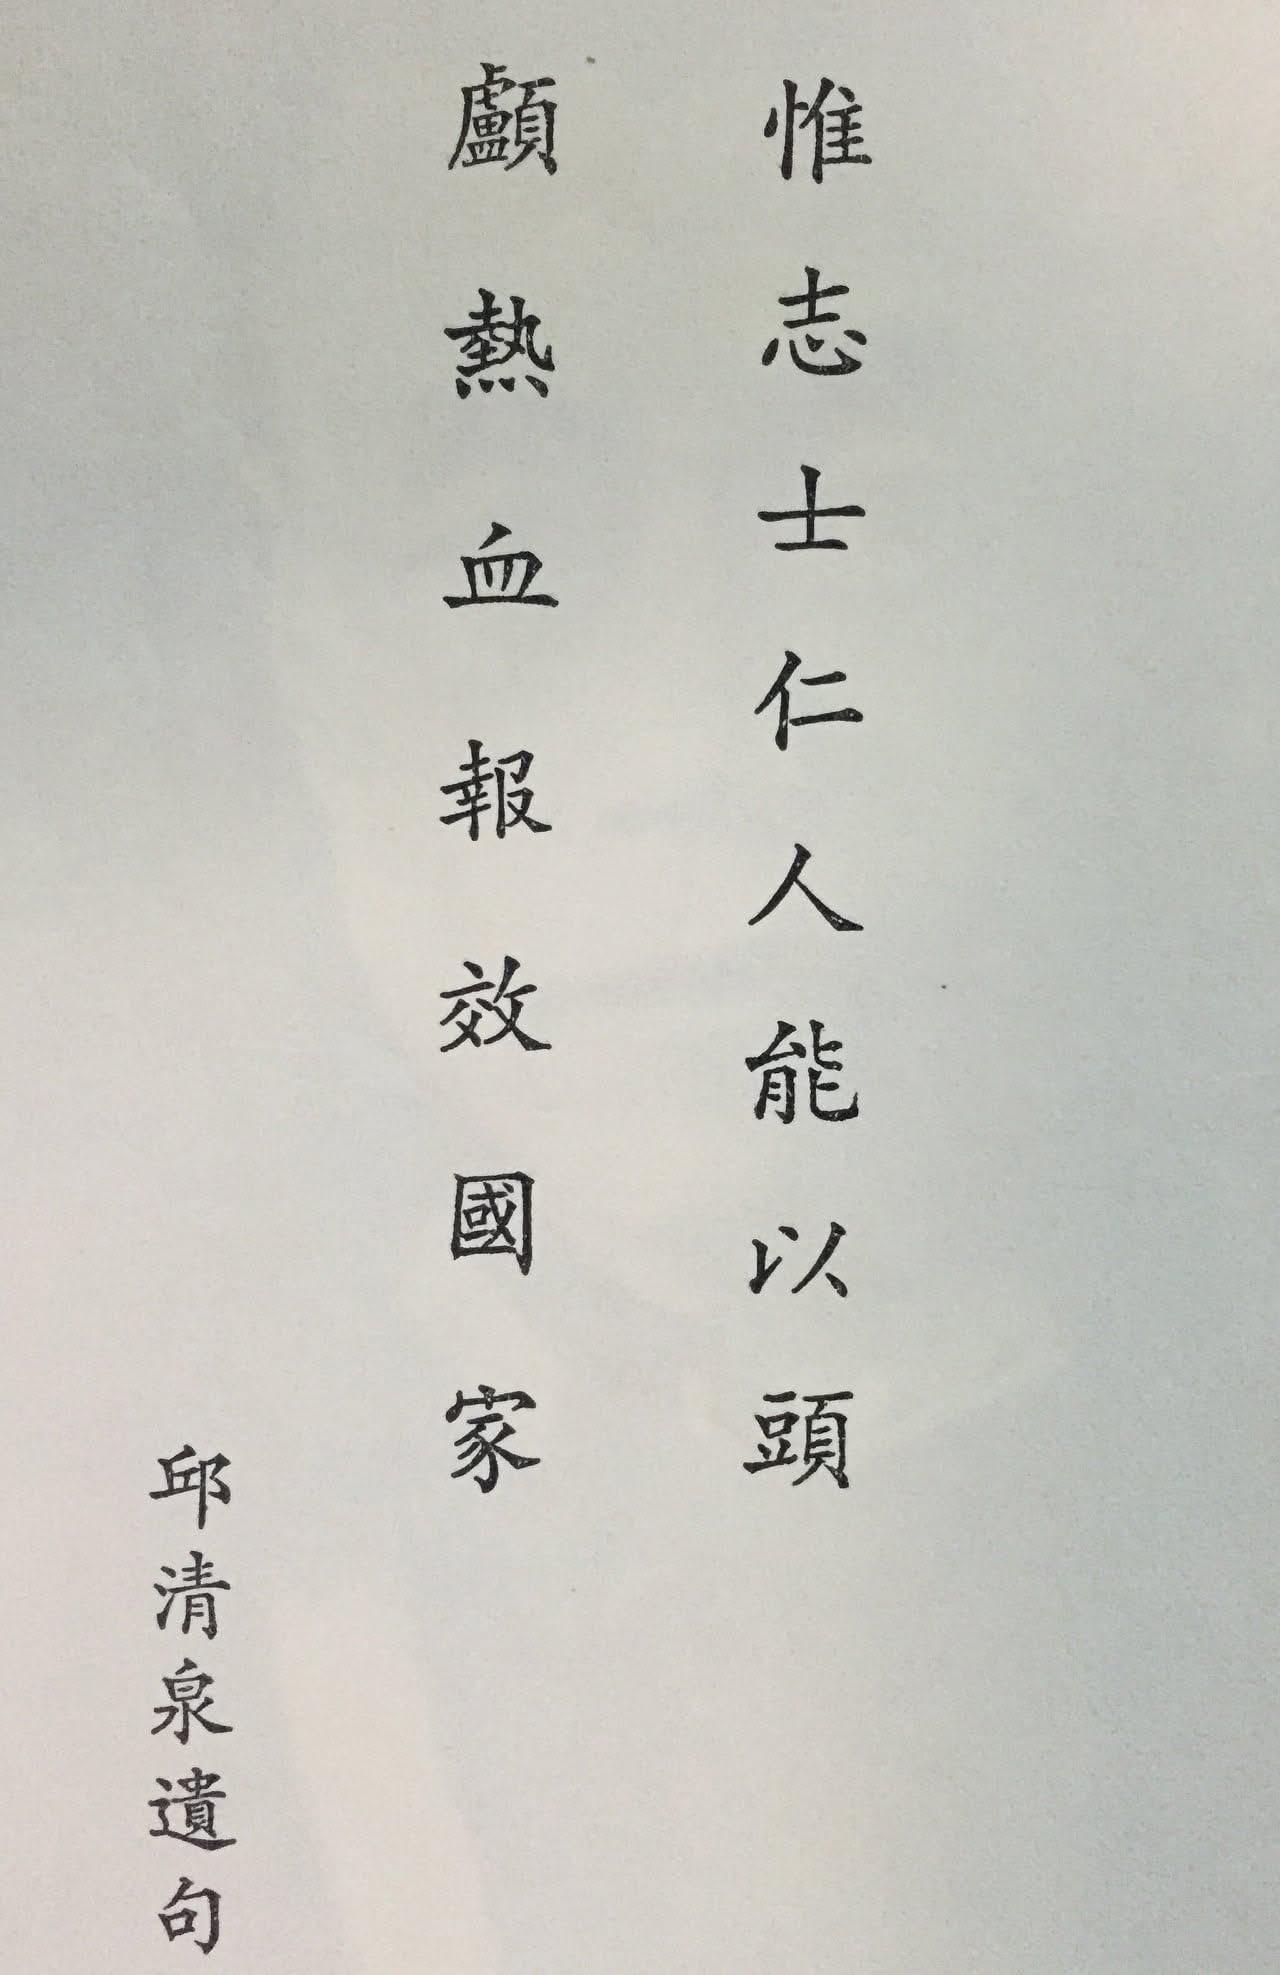 惟志士仁人能以頭
顱熱血報效國家
邱清泉遺句